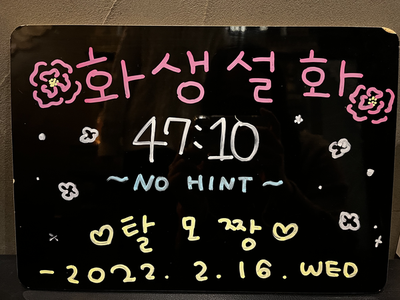 화생설화
47:10
~NO HINT~
♡탈모짱♡
-2022. 2. 16. WED